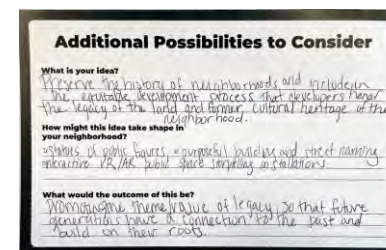 Additional Possibilities to Consider
What is your idea?
Preserve the history of neighborhoods and include in
the equitable development process that developers honor
the legacy of the land and former cultural heritage of the
neighborhood.
How might this idea take shape in
your neighborhood?
statues of public figures, purposeful building and street naming
interactive VR/AR public space storytelling installations
What would the outcome of this be?
Promoting the theme/value of legacy, so that future
generations have a connection to the past and
build on their roots.